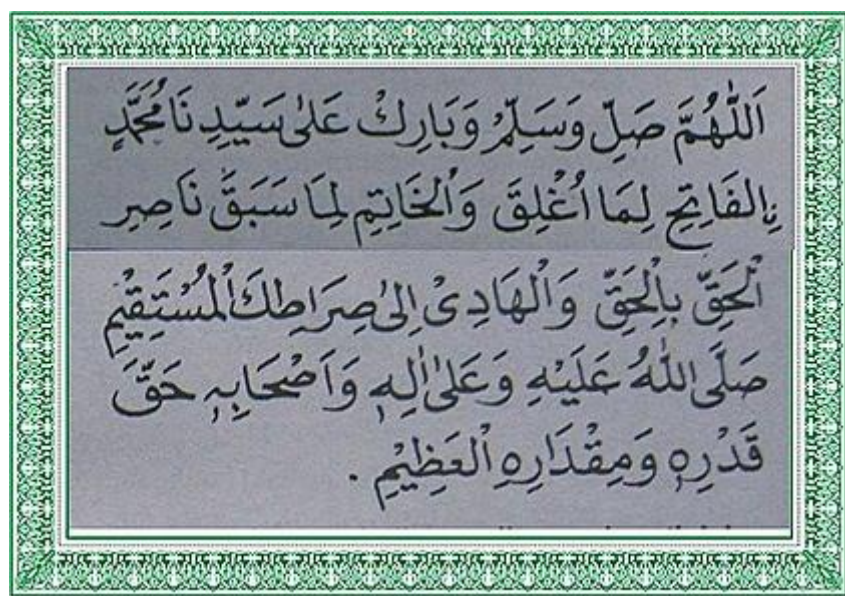 اَللّٰهُمَّ صَلِّ وَسَلِّمْ وَبَارِكْ عَلٰى سَيِّدِنَا مُحَمَّدٍ
نِالْفَاتِحِ لِمَا اُغْلِقَ وَالْخَاتِمِ لِمَا سَبَقَ نَاصِرِ
الْحَقِّ بِالْحَقِّ وَالْهَادِىْ اِلٰى صِرَاطِكَ الْمُسْتَقِيْمِ
صَلَّى اللّٰهُ عَلَيْهِ وَعَلٰى اٰلِهٖ وَاَصْحَابِهٖ حَقَّ
قَدْرِهٖ وَمِقْدَارِهِ الْعَظِيْمِ .